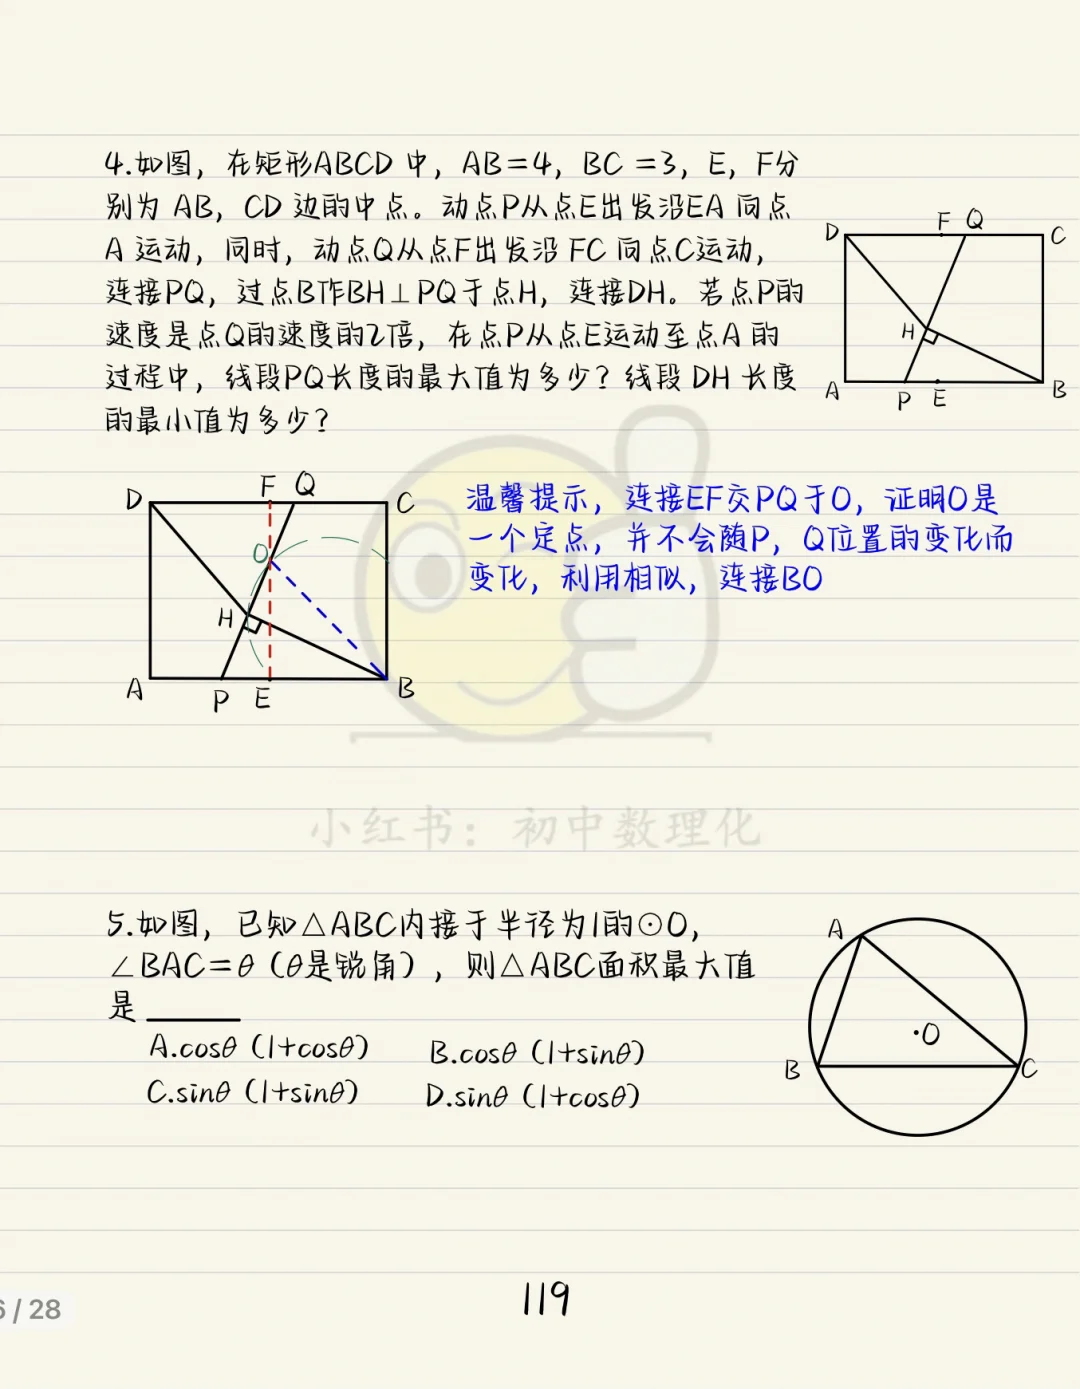 4.如图，在矩形ABCD 中，AB=4，BC =3，E，F分
别为 AB，CD 边的中点。动点P从点E出发沿EA 向点
A 运动，同时，动点Q从点F出发沿 FC 向点C运动，
连接PQ，过点B作BH⊥PQ于点H，连接DH。若点P的
速度是点Q的速度的2倍，在点P从点E运动至点A 的
过程中，线段PQ长度的最大值为多少？线段 DH 长度
的最小值为多少？
D F Q C
H
A P E B
D F Q C
O
H
A P E B
温馨提示，连接EF交PQ于O，证明O是
一个定点，并不会随P，Q位置的变化而
变化，利用相似，连接BO
小红书：初中数理化
5.如图，已知△ABC内接于半径为1的⊙O，
∠BAC=θ（θ是锐角），则△ABC面积最大值
是
A.cosθ（1+cosθ） B.cosθ（1+sinθ）
C.sinθ（1+sinθ） D.sinθ（1+cosθ）
A
·O
B C
119
6 / 28